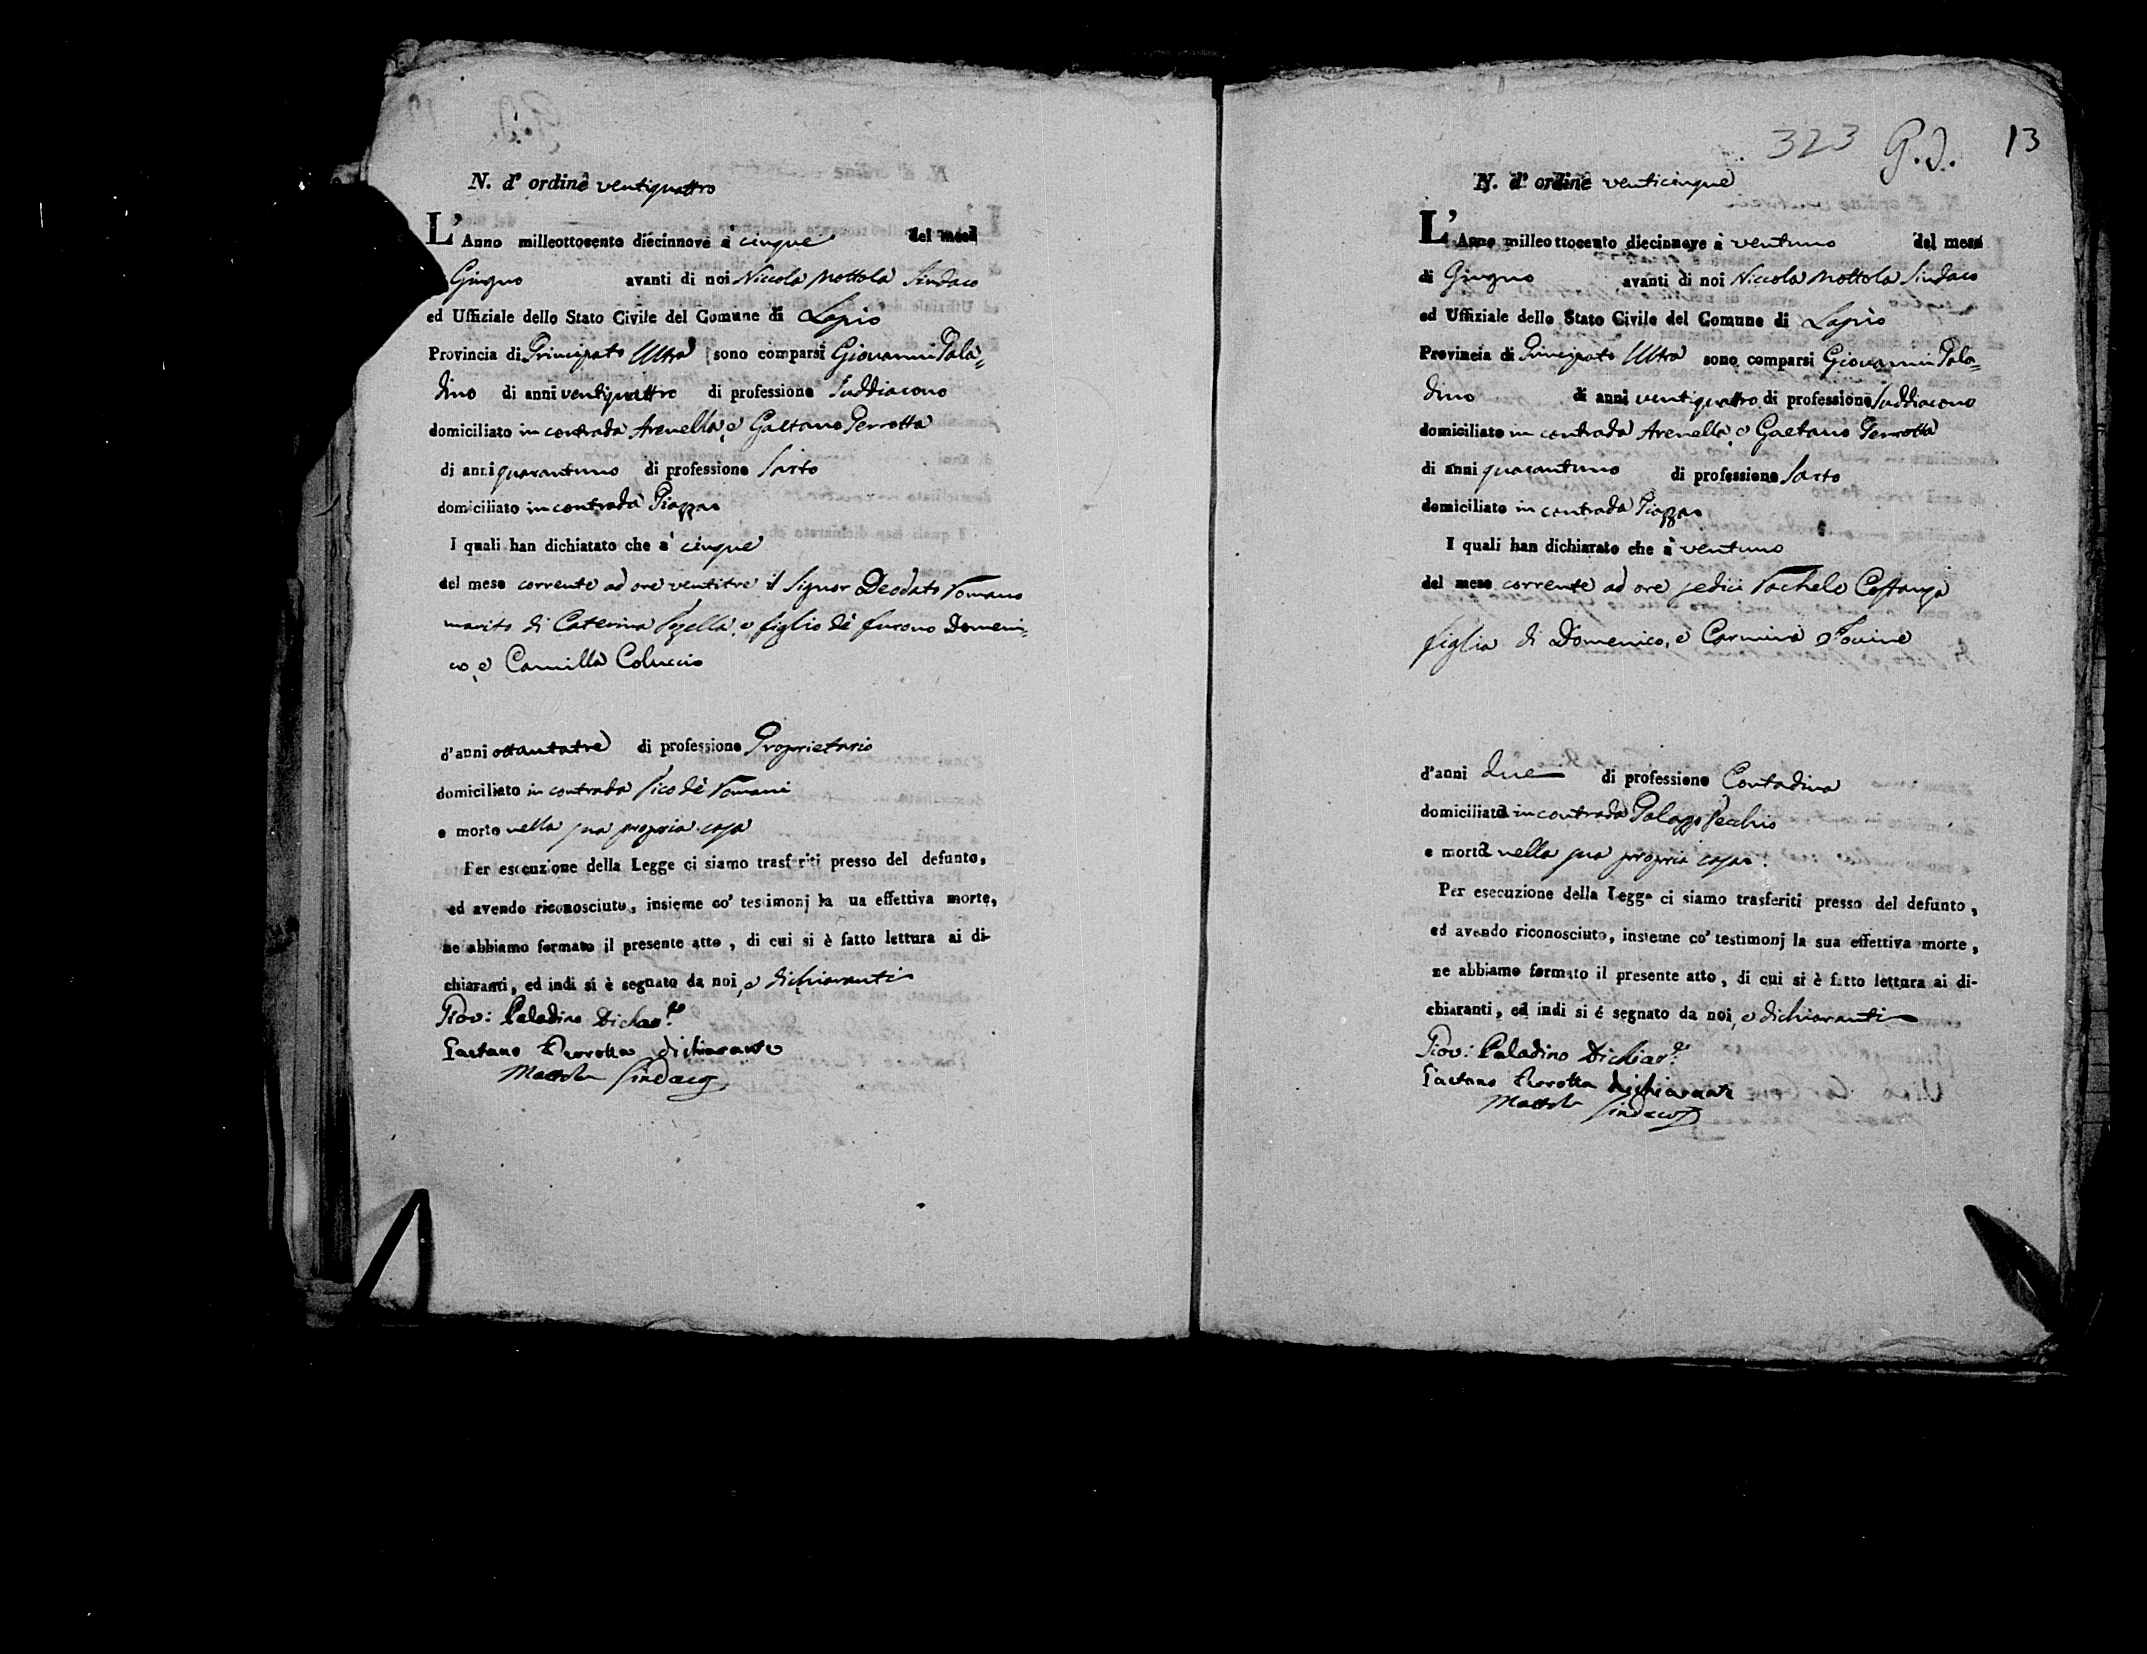 N. d'ordine ventiquattro
L'Anno milleottocento diecinnove à cinque del mese
Giugno avanti di noi Niccola Mottola Sindaco
ed Uffiziale dello Stato Civile del Comune di Lapio
Provincia di Principato Ultra sono comparsi Giovanni Pala=
dino di anni ventiquattro di professione Suddiacono
domiciliato in contrada Arenella, e Gaetano Perrotta
di anni quarantuno di professione Sarto
domiciliato in contrada Piazza
I quali han dichiatato che a' cinque
del mese corrente ad ore ventitre il Signor Deodato Romano
marito di Caterina figlio de' furono Domeni=
co, e Camilla Coluccio
d'anni ottantatre di professione Proprietario
domiciliato in contrada Vico de' Romani
e morto nella sua propria casa
Per esecuzione della Legge ci siamo trasferiti presso del defunto,
ed avendo riconosciuto, insieme co' testimonj la ua effettiva morte,
ne abbiamo formato il presente atto, di cui si è fatto lettura ai di-
chiaranti, ed indi si è segnato da noi, e dichiaranti
Giov: Paladino Dichiar.te
Gaetano Perrotta dichiarante
Mottola Sindaco
323 G.D. 13
N. d'ordine venticinque
L'Anno milleottocento diecinnove à ventuno del mese
di Giugno avanti di noi Niccola Mottola Sindaco
ed Uffiziale dello Stato Civile del Comune di Lapio
Provincia di Principato Ultra sono comparsi Giovanni Pala=
dino di anni ventiquattro di professione Suddiacono
domiciliato in contrada Arenella, e Gaetano Perrotta
di anni quarantuno di professione Sarto
domiciliato in contrada Piazza
I quali han dichiarato che à ventuno
del mese corrente ad ore sedici Rachele Costanza
figlia di Domenico, e Carmina Iovine
d'anni due di professione Contadina
domiciliata in contrada Palazzo Vecchio
e morta nella sua propria casa
Per esecuzione della Legge ci siamo trasferiti presso del defunto,
ed avendo riconosciuto, insieme co' testimonj la sua effettiva morte,
ne abbiamo formato il presente atto, di cui si è fatto lettura ai di-
chiaranti, ed indi si è segnato da noi, e dichiaranti
Giov: Paladino Dichiar.te
Gaetano Perrotta dichiarante
Mottola Sindaco